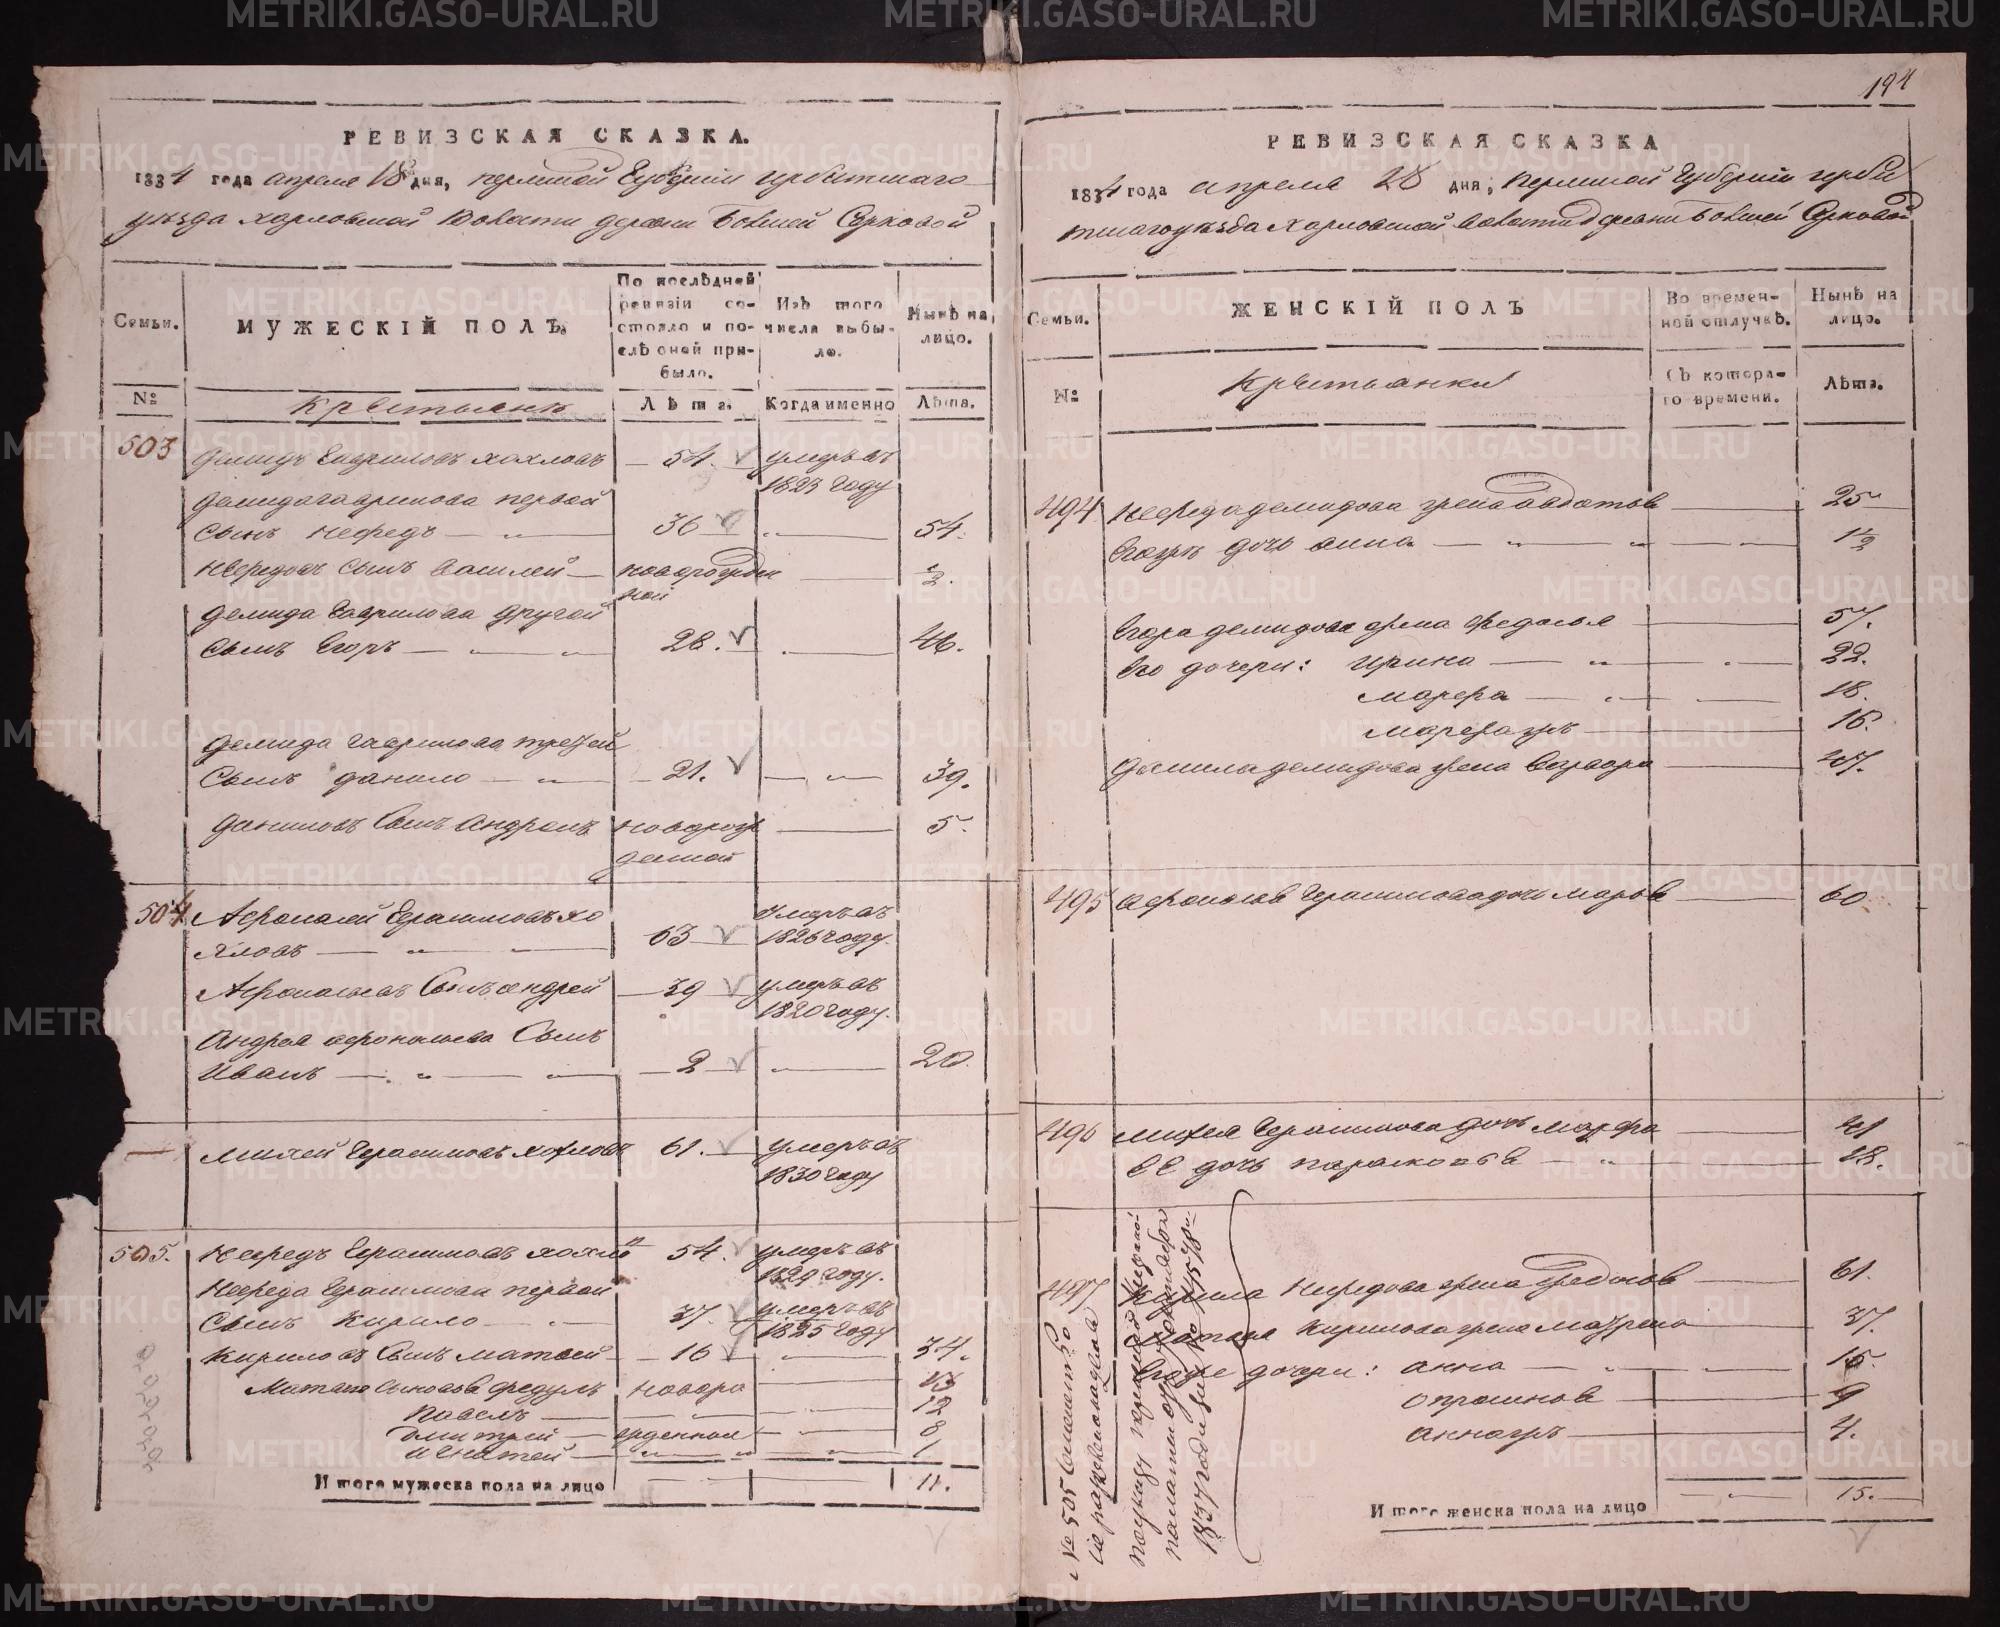 РЕВИЗСКАЯ СКАЗКА.
1834 года апреля 18 дня, пермской Губерніи ирбитскаго
уѣзда харловской Волости деревни Большей Серковой
Семьи.
МУЖЕСКІЙ ПОЛЪ.
По послѣдней ревизіи состояло и послѣ оной прибыло.
Изъ того числа выбыло.
Нынѣ на лицо.
№
Крестьянъ
Лѣта.
Когда именно
Лѣта.
503 Демидъ Гавриловъ хохловъ 54. умеръ въ
1823 году
Демида гаврилова первой
сынъ нефедъ 36 54.
Нефедовъ сынъ Василей новорожден ½.
ной
Демида Гаврилова другой
Сынъ Егоръ 28. 46.
Демида гаврилова третей
Сынъ данило 21. 39.
Даниловъ Сынъ Андрей новорож 5.
денной
504 Афонасей Герасимовъ хо умеръ въ
хловъ 63 1826 году.
Афонасьевъ Сынъ андрей 39 умеръ въ
1820 году.
Андрея афонасьева Сынъ
Иванъ 2 20.
Михей Герасимовъ хохловъ 61. умеръ въ
1830 году
505. Нефедъ Герасимовъ хохло 54. умеръ въ
1829 году.
Нефеда Герасимова первой
Сынъ Кирило 37. умеръ въ
1825 году
Кириловъ Сынъ матвей 16 34.
Матвея Сыновья федулъ новоро 13
павелъ 12
дмитрей жденныя 8
игнатей 1
И того мужеска пола на лицо 11.
194
РЕВИЗСКАЯ СКАЗКА
1834 года апреля 28 дня, Пермской Губерніи ирби
тскаго уѣзда харловской волости деревни Большей Серковой
Семьи.
ЖЕНСКІЙ ПОЛЪ
Во временной отлучкѣ.
Нынѣ на лицо.
№
Крестьянки
Съ котораго времени.
Лѣта.
494 Нефеда демидова жена 25
Егожъ дочь анна ½
Егора демидова жена федосья 57.
Его дочери: ирина 22.
марфа 18.
марфажъ 16.
Данила демидова жена Варвара 47.
495 Афонасья Герасимова дочь марья 60
496 михея Герасимова дочь марфа 41
ее дочь парасковья 18.
497 Кирила Нефедова жена 61.
матвея Кирилова жена матрена 37.
Егоже дочери: анна 15.
9
аннажъ 4.
И того женска пола на лицо 15.
№ 505 Семейство
1837 года